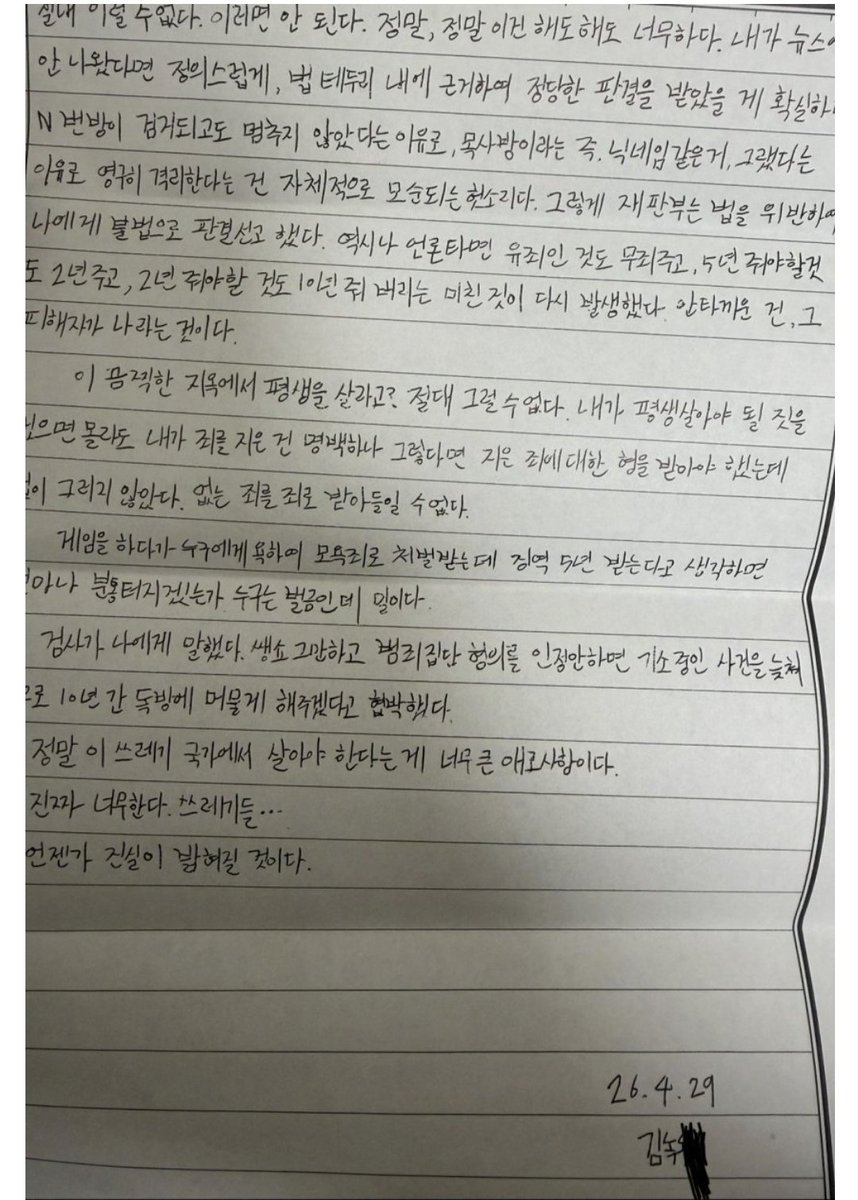 이럴 수 없다. 이러면 안 된다. 정말, 정말 이건 해도해도 너무하다. 내가 뉴스에
안 나왔다면 정의스럽게, 법 테두리 내에 근거하여 정당한 판결을 받았을 게 확실하
N번방이 검거되고도 멈추지 않았다는 이유로, 목사방이라는 즉, 닉네임같은거, 그랬다는
이유로 영구히 격리한다는 건 자체적으로 모순되는 헛소리다. 그렇게 재판부는 법을 위반하여
나에게 불법으로 판결선고 했다. 역시나 언론타면 유죄인 것도 무죄주고, 5년 줘야할것
도 2년주고, 2년 줘야할 것도 10년 줘 버리는 미친 짓이 다시 발생했다. 안타까운 건, 그
피해자가 나라는 것이다.
이 끔찍한 지옥에서 평생을 살라고? 절대 그럴 수 없다. 내가 평생살아야 될 짓을
으면 몰라도 내가 죄를 지은 건 명백하나 그렇다면 지은 죄에 대한 형을 받아야 했는데
이 그러지 않았다. 없는 죄를 죄로 받아들일 수 없다.
게임을 하다가 누구에게 욕하여 모욕죄로 처벌받는데 징역 5년 받는다고 생각하면
마나 분통터지겠는가 누구는 벌금인데 말이다.
검사가 나에게 말했다. 쌩쇼 그만하고 범죄집단 혐의를 인정안하면 기소중인 사건을 늦춰
로 10년간 독방에 머물게 해주겠다고 협박했다.
정말 이 쓰레기 국가에서 살아야 한다는 게 너무 큰 애로사항이다.
진짜 너무한다. 쓰레기들...
언젠가 진실이 밝혀질 것이다.
26.4.29
김녹